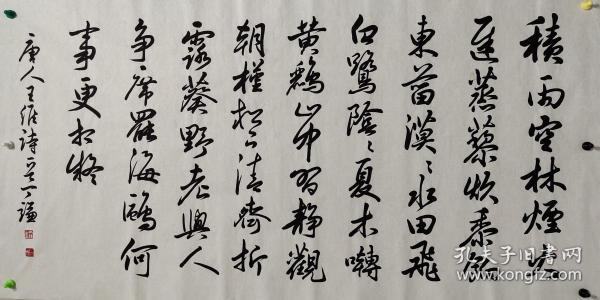 積雨空林煙火
遲蒸藜炊黍餉
東菑漠〻水田飛
白鷺陰〻夏木囀
黃鸝山中習靜觀
朝槿松下清齋折
露葵野老與人
爭席罷海鷗何
事更相疑
唐人王維詩
孔夫子旧书网
www.kongfz.com